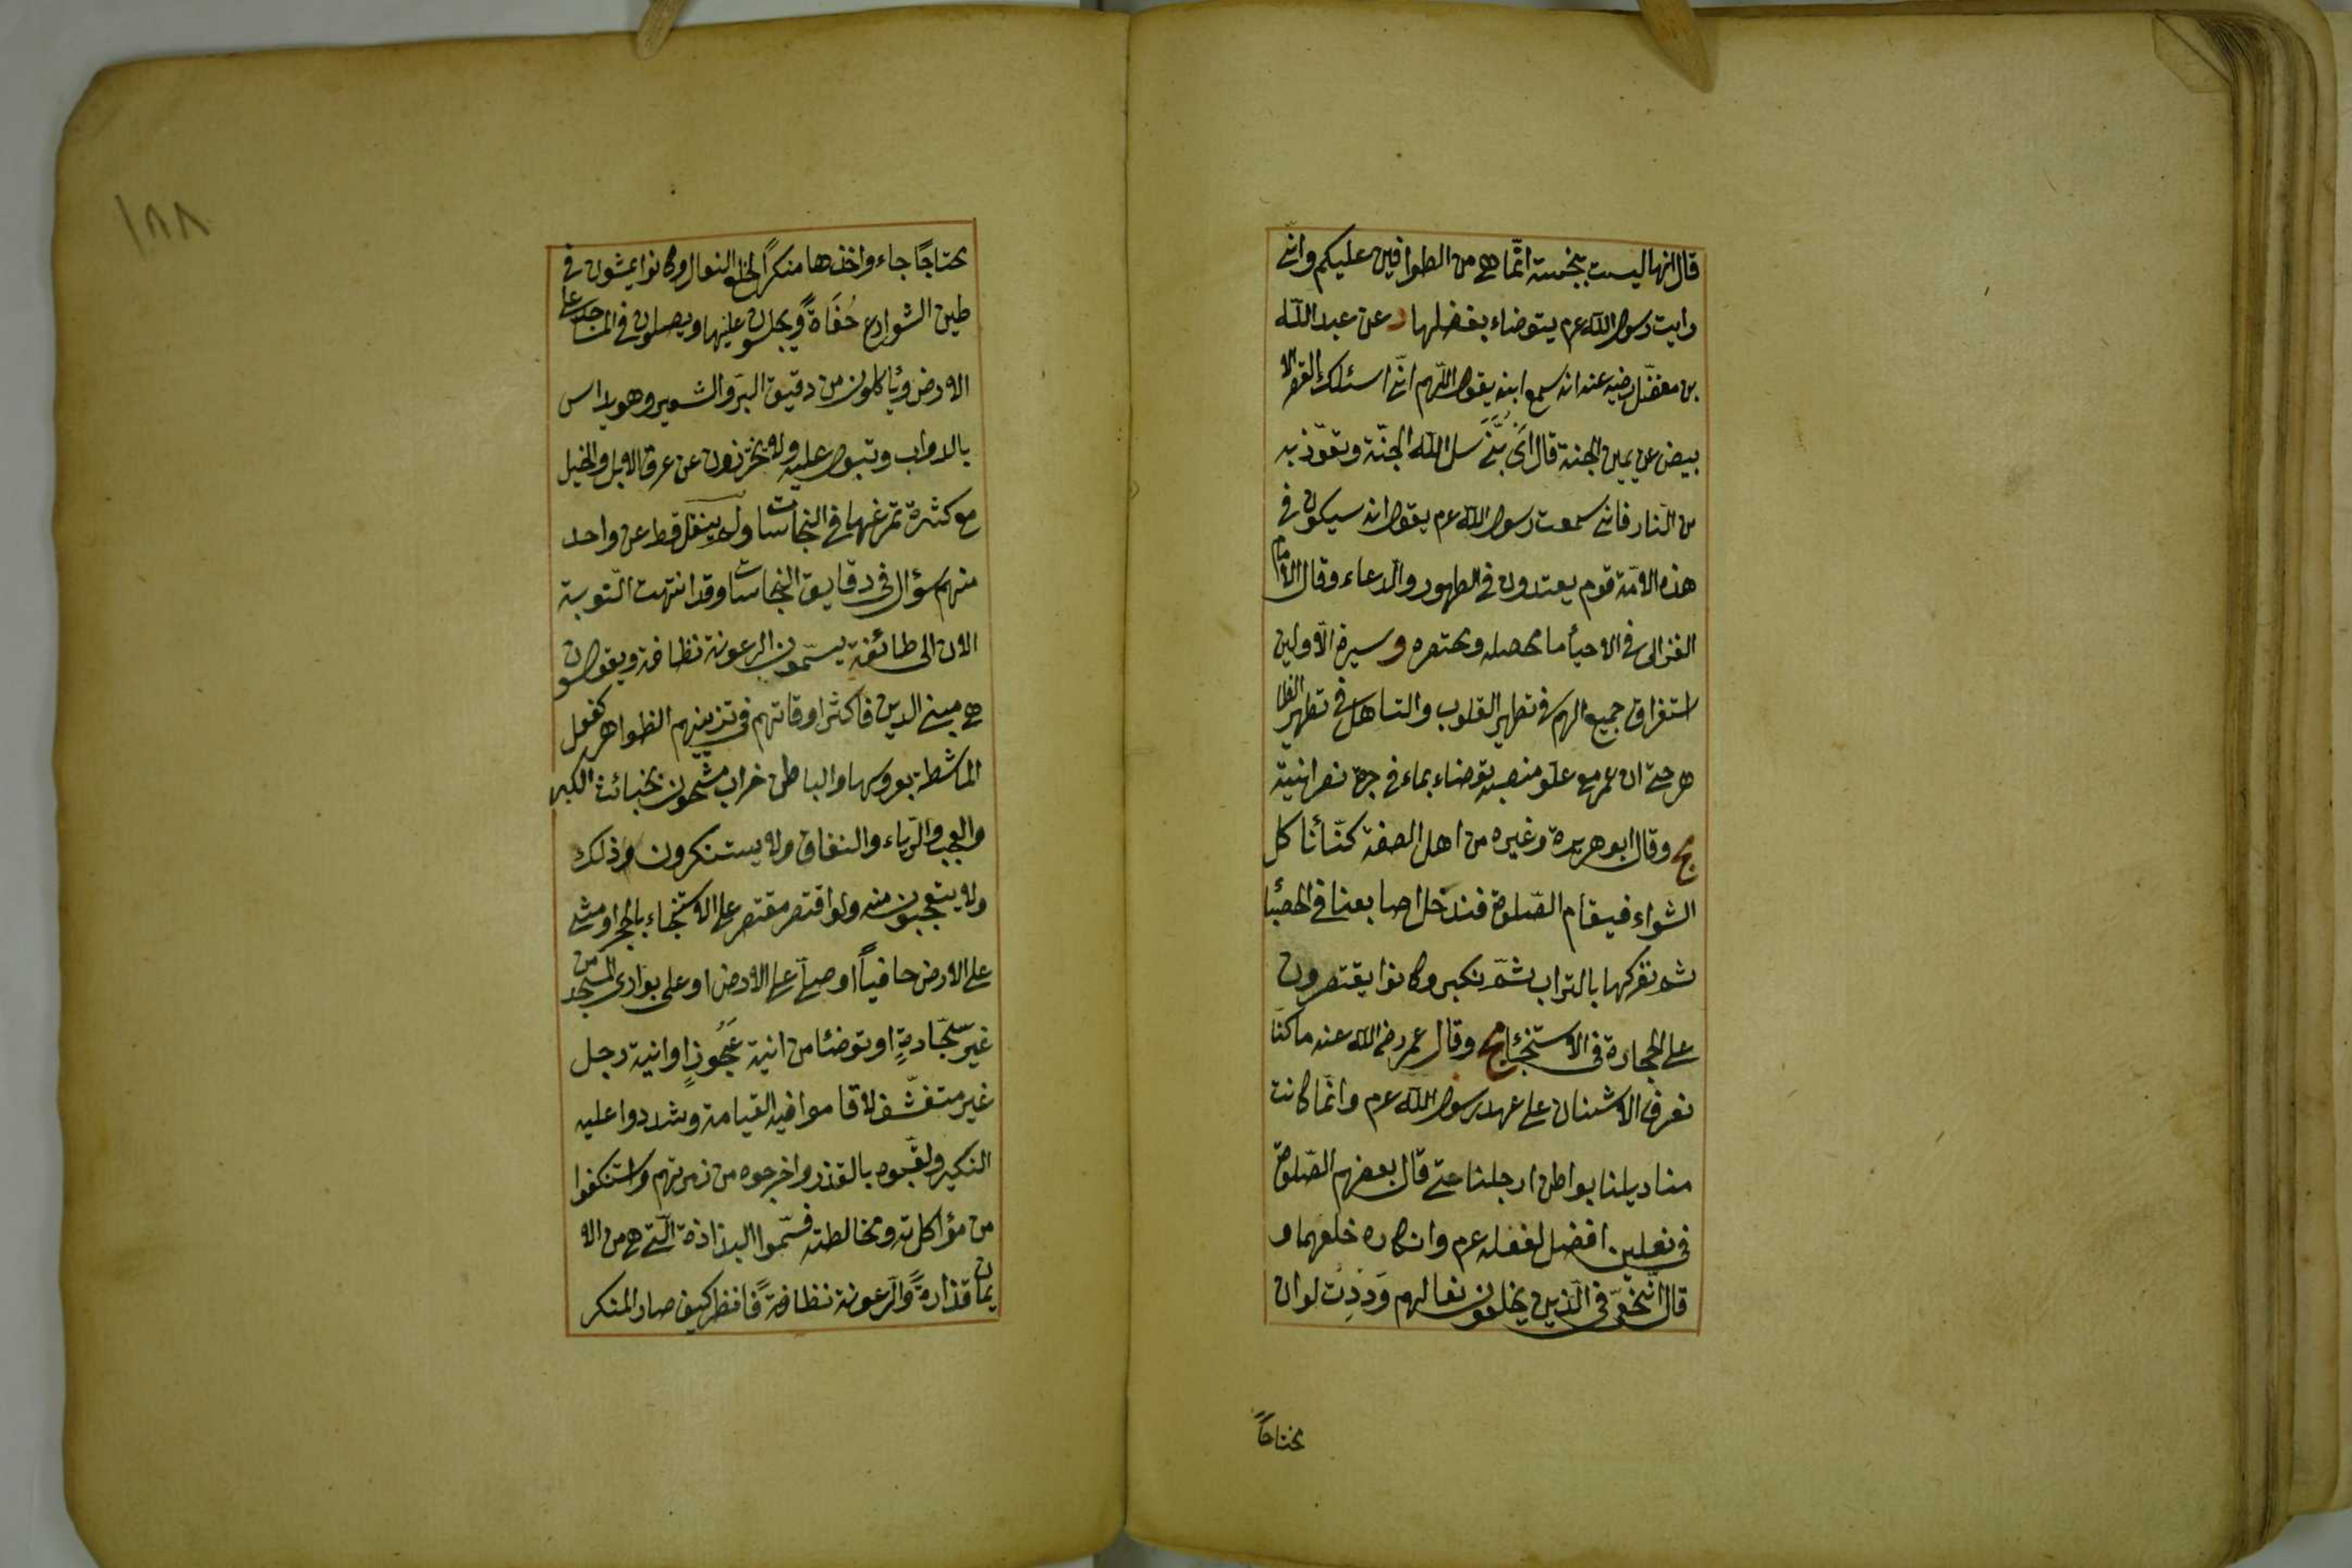 قال انها ليست بنجسة انّما هى من الطوافين عليكم وانّى
رايت رسول الله عم يتوضاء بفضلها د عن عبد الله
بن مغفّل رضيه عنه انه سمع ابنه يقول اللّهم انّى اسئلك القصر الا
بيض عن يمين الجنة قال اَىْ بُنَّىَ سل الله الجنّة وتعوّذ به
من النّار فانى سمعت رسول الله عم يقول انه سيكون فى
هذه الامّة قوم يعتدون فى الطهور والدعاء وقال الامام
الغزالى فى الاحيأ ما محصله ومختصره و سيرة الاولين
استغراق جميع الهم فى تطهير القلوب والتساهل فى تطهير الظا
هر حتى ان عمر مع علو منصبه توضاء بماء فى جرة نصرانية
ج وقال ابو هريرة وغيره من اهل الصفة كنّا نأكل
الشواء فيقام الصّلوة فندخل اصابعنا فى الحصبا
ثم نفركها بالتراب ثمّ نكبر وكانوا يقتصرون
على الحجارة فى الاستنجاء ج وقال عمر رضى الله عنه ما كنّا
نعرف الاشنان على عهد رسول الله عم وانّما كانت
مناديلنا بواطن ارجلنا حتى قال بعضهم الصّلوة
فى نعلين افضل لفعله عم وانكاره خلعهما و
قال النّخعىّ فى الّذين يخلعون نعالهم وَدِدت لو ان
محتاجاً
١٨٨
محتاجًا جاء واخذها منكراً لخلع النعال وكانوا يمشون فى
طين الشوارع حُفَاةً ويجلسون عليها ويصلون فى المساجد على
الارض ويأكلون من دقيق البرّ والشعير وهو يداس
بالدواب وتبول عليه ولا يحترزون عن عرق الابل والخيل
مع كثرة تمرغها فى النجاسات ولم ينقل قط عن واحد
منهم سؤال فى دقايق النجاسات وقد انتهت النّوبة
الان الى طائفة يسمّون الرعونة نظافة ويقولون
هى مبنى الدين فاكثر اوقاتهم فى تزيينهم الظواهر كفعل
الماشطة بعروسها والباطن خراب مشحون بخبائث الكبر
والعجب والرّياء والنفاق ولا يستنكرون ذلك
ولا يتعجبون منه ولو اقتصر مقتصر على الاستنجاء بالحجر او مشى
على الارض حافياً او صلّى على الارض او على بوارى المسجد من
غير سجّادةٍ او توضئا من انية عَجُوزٍ او انية رجل
غير متقشّف لاقاموا فيه القيامة وشددوا عليه
النكير ولقّبوه بالقذر واخرجوه من زمرتهم واستنكفوا
من مؤاكلته ومخالطته فسمّوا البذاذة الّتى هى من الا
يمان قذارةً والرّعونة نظافةً فانظر كيف صار المنكر